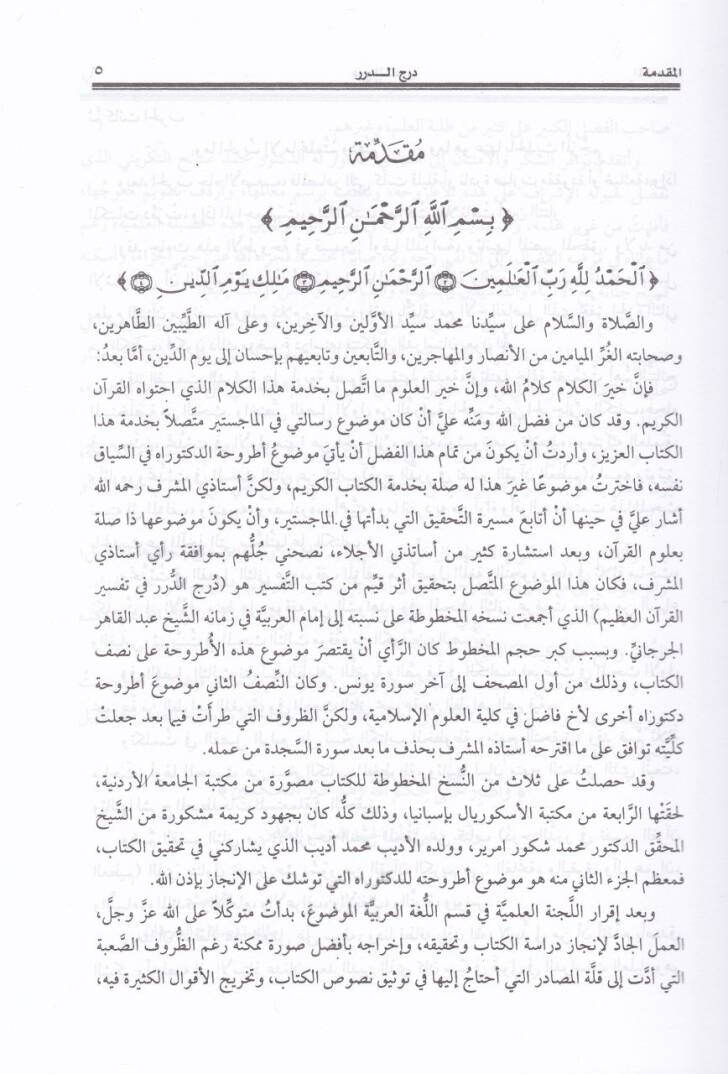 المقدمة درج الـــدرر ٥
مُقَدِّمة
﴿ بِسْمِ ٱللَّهِ ٱلرَّحْمَٰنِ ٱلرَّحِيمِ ﴾
﴿ ٱلْحَمْدُ لِلَّهِ رَبِّ ٱلْعَٰلَمِينَ ٢ ٱلرَّحْمَٰنِ ٱلرَّحِيمِ ٣ مَٰلِكِ يَوْمِ ٱلدِّينِ ٤ ﴾
والصَّلاة والسَّلام على سيِّدنا محمد سيِّد الأوَّلين والآخِرين، وعلى آله الطَّيِّبين الطَّاهرين،
وصحابته الغُرِّ الميامين من الأنصار والمهاجرين، والتَّابعين وتابعيهم بإحسان إلى يوم الدِّين، أمَّا بعدُ:
فإنَّ خيرَ الكلام كلامُ الله، وإنَّ خير العلوم ما اتَّصل بخدمة هذا الكلام الذي احتواه القرآن
الكريم. وقد كان من فضل الله ومَنِّه عليَّ أنْ كان موضوع رسالتي في الماجستير متَّصلاً بخدمة هذا
الكتاب العزيز، وأردتُ أنْ يكونَ من تمام هذا الفضل أنْ يأتيَ موضوعُ أطروحة الدكتوراه في السِّياق
نفسه، فاخترتُ موضوعًا غيرَ هذا له صلة بخدمة الكتاب الكريم، ولكنَّ أستاذي المشرف رحمه الله
أشار عليَّ في حينها أنْ أتابعَ مسيرة التَّحقيق التي بدأتها في الماجستير، وأنْ يكونَ موضوعها ذا صلة
بعلوم القرآن، وبعد استشارة كثير من أساتذتي الأجلاء، نصحني جُلُّهم بموافقة رأي أستاذي
المشرف، فكان هذا الموضوع المتَّصل بتحقيق أثر قيِّم من كتب التَّفسير هو (دُرج الدُّرر في تفسير
القرآن العظيم) الذي أجمعت نسخه المخطوطة على نسبته إلى إمام العربيَّة في زمانه الشَّيخ عبد القاهر
الجرجانيِّ. وبسبب كبر حجم المخطوط كان الرَّأي أنْ يقتصرَ موضوع هذه الأُطروحة على نصف
الكتاب، وذلك من أول المصحف إلى آخر سورة يونس. وكان النِّصفُ الثاني موضوعَ أطروحة
دكتوراه أخرى لأخ فاضل في كلية العلوم الإسلامية، ولكنَّ الظروف التي طرأتْ فيما بعد جعلتْ
كلِّيَّته توافق على ما اقترحه أستاذه المشرف بحذف ما بعد سورة السَّجدة من عمله.
وقد حصلتُ على ثلاث من النُّسخ المخطوطة للكتاب مصوَّرة من مكتبة الجامعة الأردنية،
لحقتْها الرَّابعة من مكتبة الأسكوريال بإسبانيا، وذلك كلُّه كان بجهود كريمة مشكورة من الشَّيخ
المحقِّق الدكتور محمد شكور امرير، وولده الأديب محمد أديب الذي يشاركني في تحقيق الكتاب،
فمعظم الجزء الثاني منه هو موضوع أطروحته للدكتوراه التي توشك على الإنجاز بإذن الله.
وبعد إقرار اللَّجنة العلميَّة في قسم اللُّغة العربيَّة الموضوعَ، بدأتُ متوكِّلاً على الله عزَّ وجلَّ،
العملَ الجادَّ لإنجاز دراسة الكتاب وتحقيقه، وإخراجه بأفضل صورة ممكنة رغم الظُّروف الصَّعبة
التي أدَّت إلى قلَّة المصادر التي أحتاجُ إليها في توثيق نصوص الكتاب، وتخريج الأقوال الكثيرة فيه،